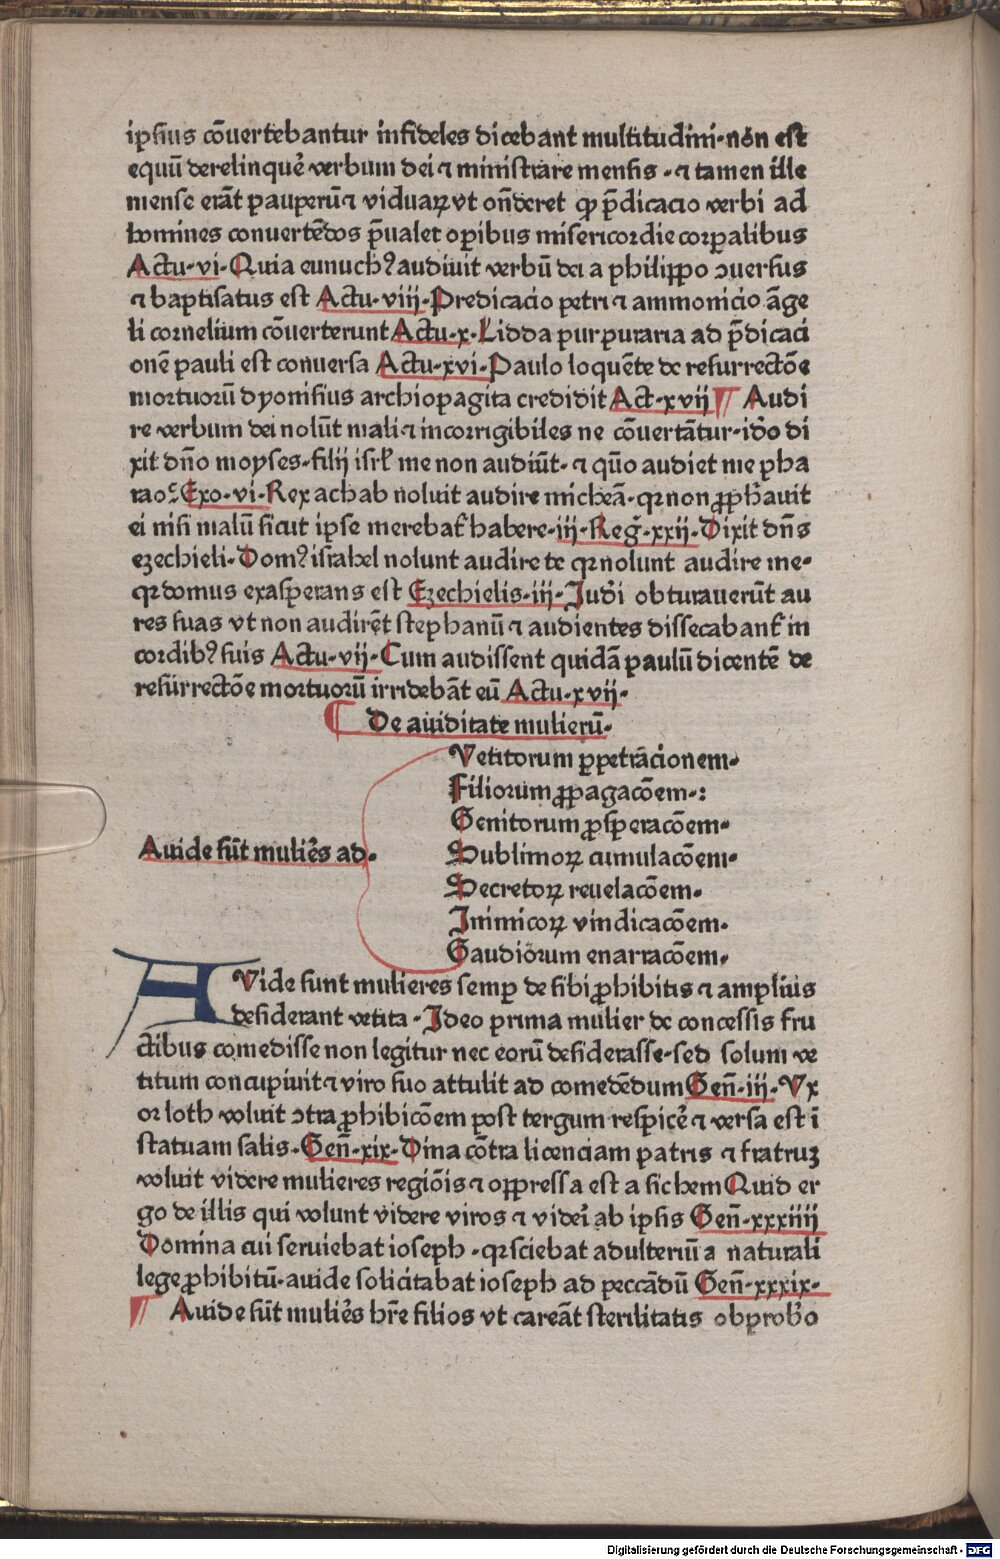 ipsius cõuertebantur infideles dicebant multitudini·non est
equũ derelinquẽ verbum dei ⁊ ministrare mensis·⁊ tamen ille
mense erãt pauperũ ⁊ viduaꝝ vt onderet ꝙ p̃dicacio verbi ad
homines conuertẽdos p̃ualet oꝑibus misericordie corꝑalibus
Actu·vi·Quia eunuchꝰ audiuit verbũ dei a philippo ꝯuersus
⁊ baptisatus est Actu·viii·Predicacio petri ⁊ ammonicio ãge
li cornelium cõuerterunt Actu·x·Lidda purpuraria ad p̃dicaci
onẽ pauli est conuersa Actu·xvi·Paulo loquẽte de resurrectõe
mortuorũ dyonisius archiopagita credidit Act·xvij ¶ Audi
re verbum dei nolũt mali ⁊ incorrigibiles ne cõuertãtur·ido di
xit dño moyses·filij isrl̃ me non audiũt·⁊ quõ audiet me pha
rao Exo·vi·Rex achab noluit audire micheã·qꝛ non ꝓph̃auit
ei nisi malũ sicut ipse merebat̃ habere·iij·Reg̃·xxij·Dixit dñs
ezechieli·Domꝰ israhel nolunt audire te qꝛ nolunt audire me·
qꝛ domus exasperans est Ezechielis·iij·Judi obturauerũt au
res suas vt non audirẽt stephanũ ⁊ audientes dissecabant̃ in
cordibꝰ suis Actu·vij·Cum audissent quidã paulũ dicentẽ de
resurrectõe mortuorũ irridebãt eũ Actu·xvij·
¶ De auiditate mulierũ·
Vetitorum ꝑpetracionem·
Filiorum ꝓpagacõem·:
Genitorum ꝓsperacõem·
Auide sũt mulieres ad·
Sublimoꝝ cumulacõem·
Secretoꝝ reuelacõem·
Inimicoꝝ vindicacõem·
Gaudiorum enarracõem·
AVide sunt mulieres semꝑ de sibi ꝓhibitis ⁊ amplius
desiderant vetita·Ideo prima mulier de concessis fru
ctibus comedisse non legitur nec eorũ desiderasse·sed solum ve
titum concupiuit ⁊ viro suo attulit ad comedẽdum Geñ·iij·Vx
or loth voluit ꝯtra ꝓhibicõem post tergum respicẽ ⁊ versa est ĩ
statuam salis·Geñ·xix·Dina cõtra licenciam patris ⁊ fratruꝫ
voluit videre mulieres regiõis ⁊ oppressa est a sichem Quid er
go de illis qui volunt videre viros ⁊ videri ab ipsis Geñ·xxxiiij
Domina cui seruiebat ioseph·qꝛ sciebat adulteriũ a naturali
lege ꝓhibitũ·auide solicitabat ioseph ad peccãdũ Geñ·xxxix·
¶ Auide sũt mulieres hr̃e filios vt careãt sterilitatis obprobo